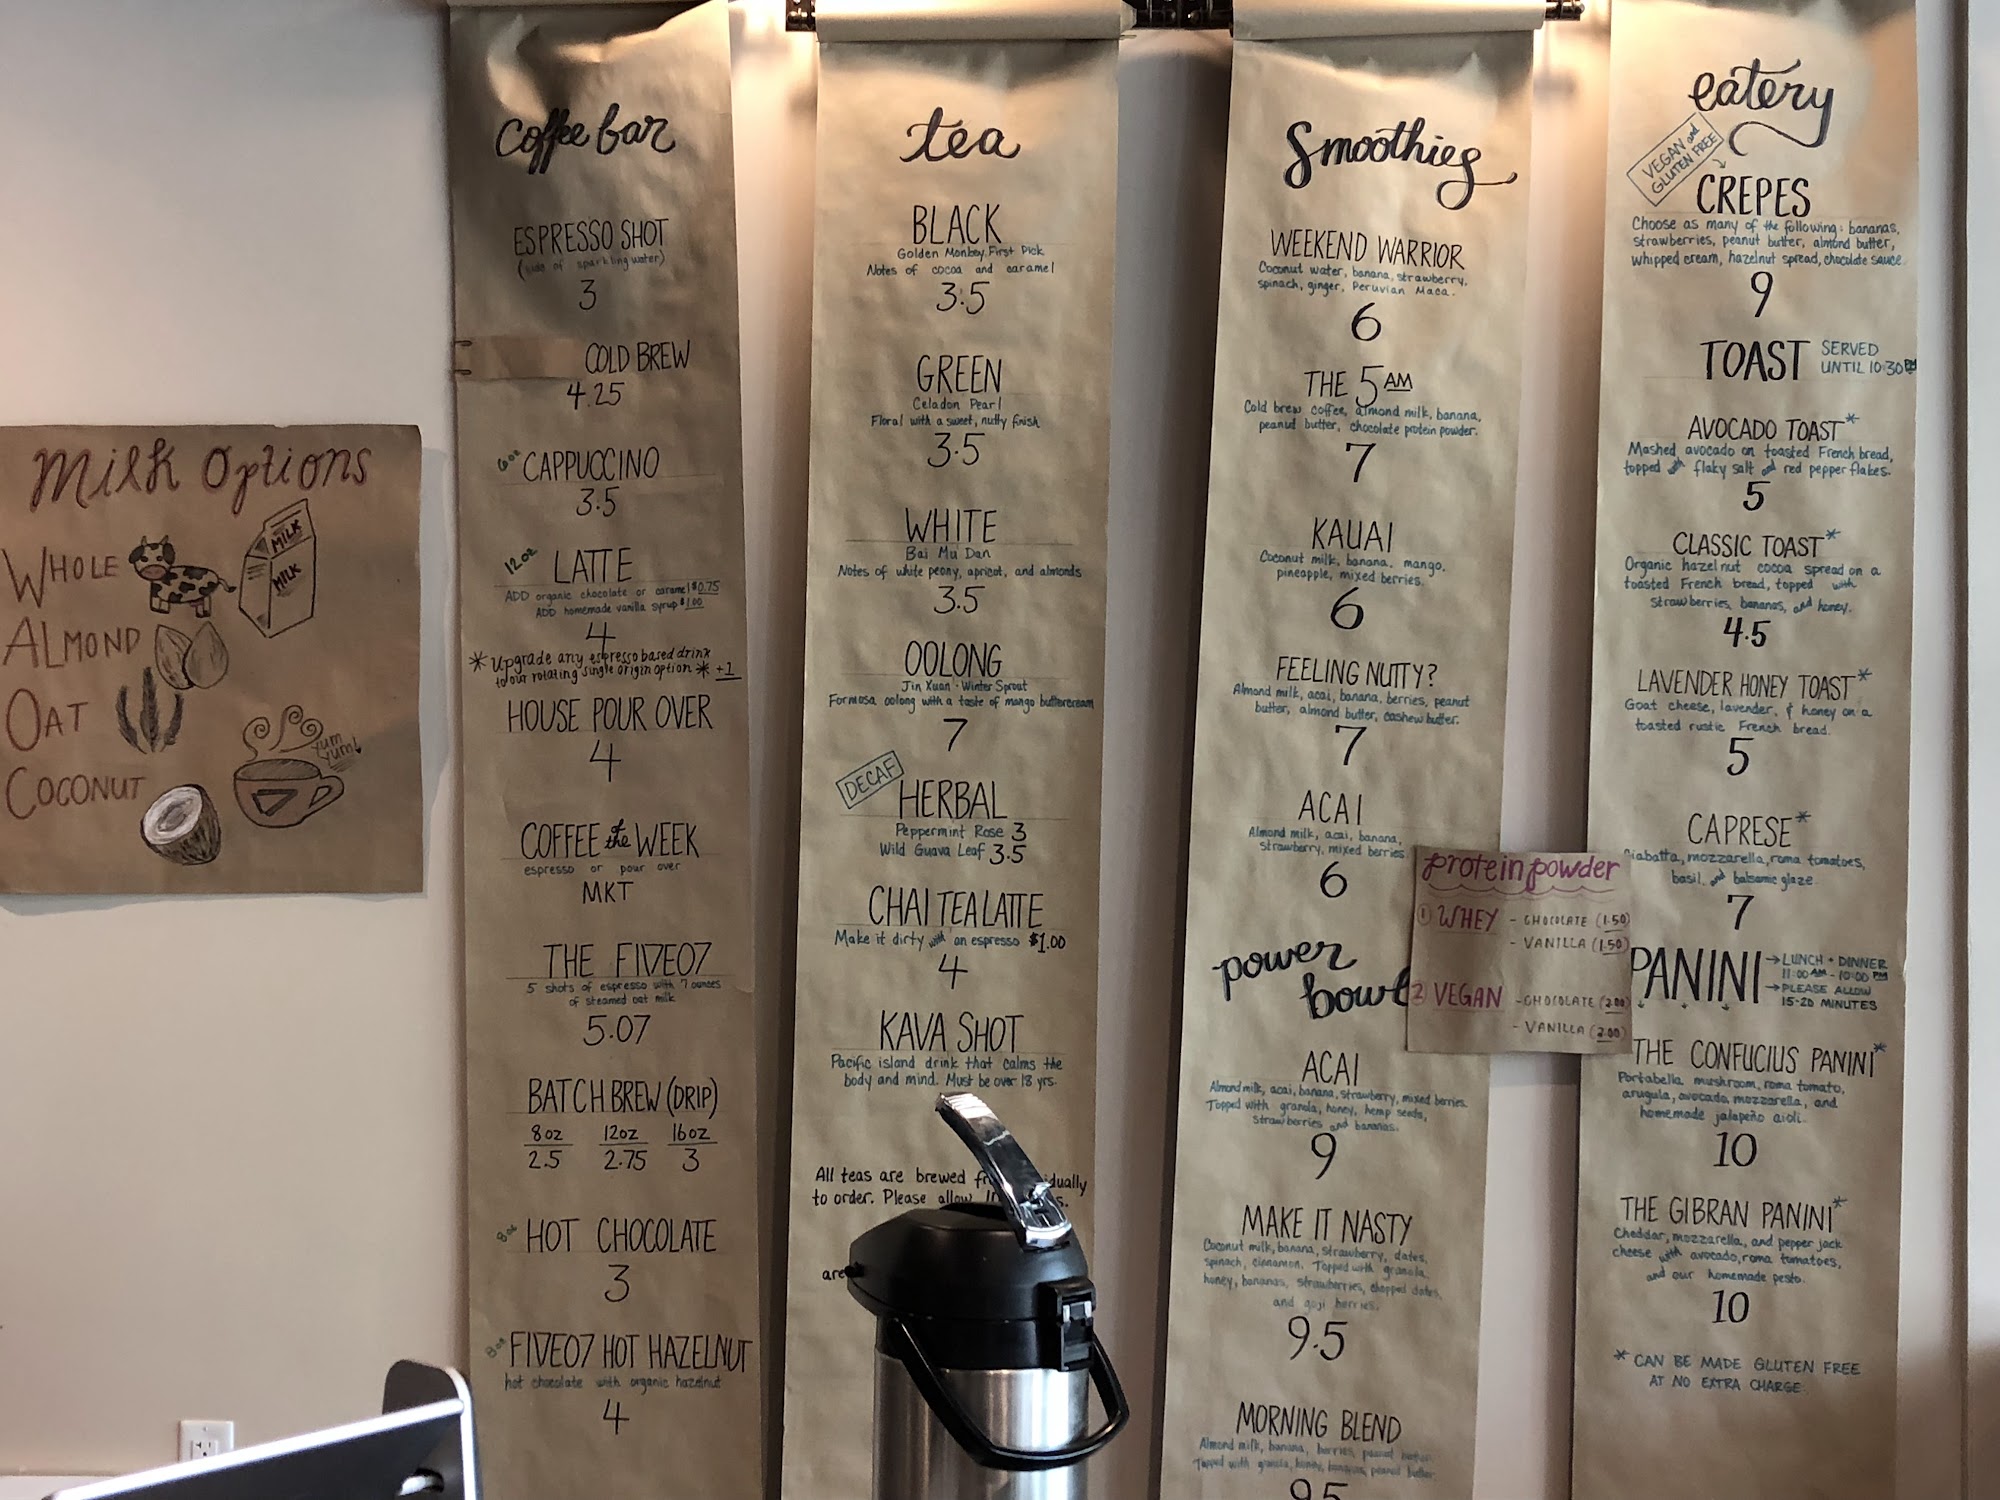 Milk Options
WHOLE
MILK
MILK
ALMOND
OAT
COCONUT
YUM
YUM!
Coffee bar
ESPRESSO SHOT
(side of sparkling water)
3
COLD BREW
4.25
6oz CAPPUCCINO
3.5
12oz LATTE
ADD organic chocolate or caramel $0.75
ADD homemade vanilla syrup $1.00
4
* Upgrade any espresso based drink
to our rotating single origin option * +1
HOUSE POUR OVER
4
COFFEE of the WEEK
espresso or pour over
MKT
THE FIVE07
5 shots of espresso with 7 ounces
of steamed oat milk
5.07
BATCH BREW (DRIP)
8oz 12oz 16oz
2.5 2.75 3
8oz HOT CHOCOLATE
3
8oz FIVE07 HOT HAZELNUT
hot chocolate with organic hazelnut
4
tea
BLACK
Golden Monkey First Pick
Notes of cocoa and caramel
3.5
GREEN
Celadon Pearl
Floral with a sweet, nutty finish
3.5
WHITE
Bai Mu Dan
Notes of white peony, apricot, and almonds
3.5
OOLONG
Jin Xuan · Winter Sprout
Formosa oolong with a taste of mango buttercream
7
DECAF
HERBAL
Peppermint Rose 3
Wild Guava Leaf 3.5
CHAI TEA LATTE
Make it dirty with an espresso $1.00
4
KAVA SHOT
Pacific island drink that calms the
body and mind. Must be over 18 yrs.
All teas are brewed
to order. Please allow
are
Smoothies
WEEKEND WARRIOR
Coconut water, banana, strawberry,
spinach, ginger, Peruvian Maca.
6
THE 5AM
Cold brew coffee, almond milk, banana,
peanut butter, chocolate protein powder.
7
KAUAI
Coconut milk, banana, mango,
pineapple, mixed berries.
6
FEELING NUTTY?
Almond milk, acai, banana, berries, peanut
butter, almond butter, cashew butter.
7
ACAI
Almond milk, acai, banana,
strawberry, mixed berries
6
power
bowl
ACAI
Almond milk, acai, banana, strawberry, mixed berries.
Topped with granola, honey, hemp seeds,
strawberries and bananas.
9
MAKE IT NASTY
Coconut milk, banana, strawberry, dates,
spinach, cinnamon. Topped with granola,
honey, bananas, strawberries, chopped dates,
and goji berries.
9.5
MORNING BLEND
Almond milk, banana, berries, peanut butter.
Topped with granola, honey, bananas, peanut butter
9.5
protein powder
1 WHEY - CHOCOLATE (1.50)
- VANILLA (1.50)
2 VEGAN - CHOCOLATE (2.00)
- VANILLA (2.00)
eatery
VEGAN and
GLUTEN FREE
CREPES
Choose as many of the following: bananas,
strawberries, peanut butter, almond butter,
whipped cream, hazelnut spread, chocolate sauce.
9
TOAST SERVED
UNTIL 10:30PM
AVOCADO TOAST*
Mashed avocado on toasted French bread,
topped with flaky salt and red pepper flakes.
5
CLASSIC TOAST*
Organic hazelnut cocoa spread on a
toasted French bread, topped with
strawberries, bananas, and honey.
4.5
LAVENDER HONEY TOAST*
Goat cheese, lavender, & honey on a
toasted rustic French bread.
5
CAPRESE*
Ciabatta, mozzarella, roma tomatoes,
basil, and balsamic glaze
7
PANINI → LUNCH + DINNER
11:00AM - 10:00PM
→ PLEASE ALLOW
15-20 MINUTES
THE CONFUCIUS PANINI*
Portabella mushroom, roma tomato,
arugula, avocado, mozzarella, and
homemade jalapeño aioli.
10
THE GIBRAN PANINI*
Cheddar, mozzarella, and pepper jack
cheese with avocado, roma tomatoes,
and our homemade pesto.
10
* CAN BE MADE GLUTEN FREE
AT NO EXTRA CHARGE